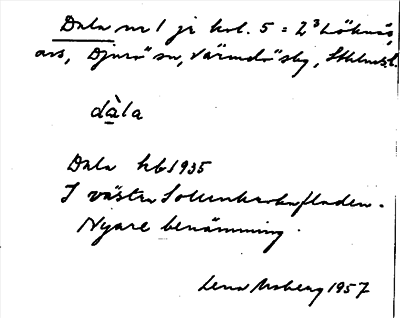 Dala nr 1 jr kol. 5 = 2³ Löknäs,
avs, Djurö sn, Värmdö slg, Sthlms l.
dàla
Dala hb 1935
I västra Sollenkrokafladen.
Nyare benämning.
Lena Moberg 1957